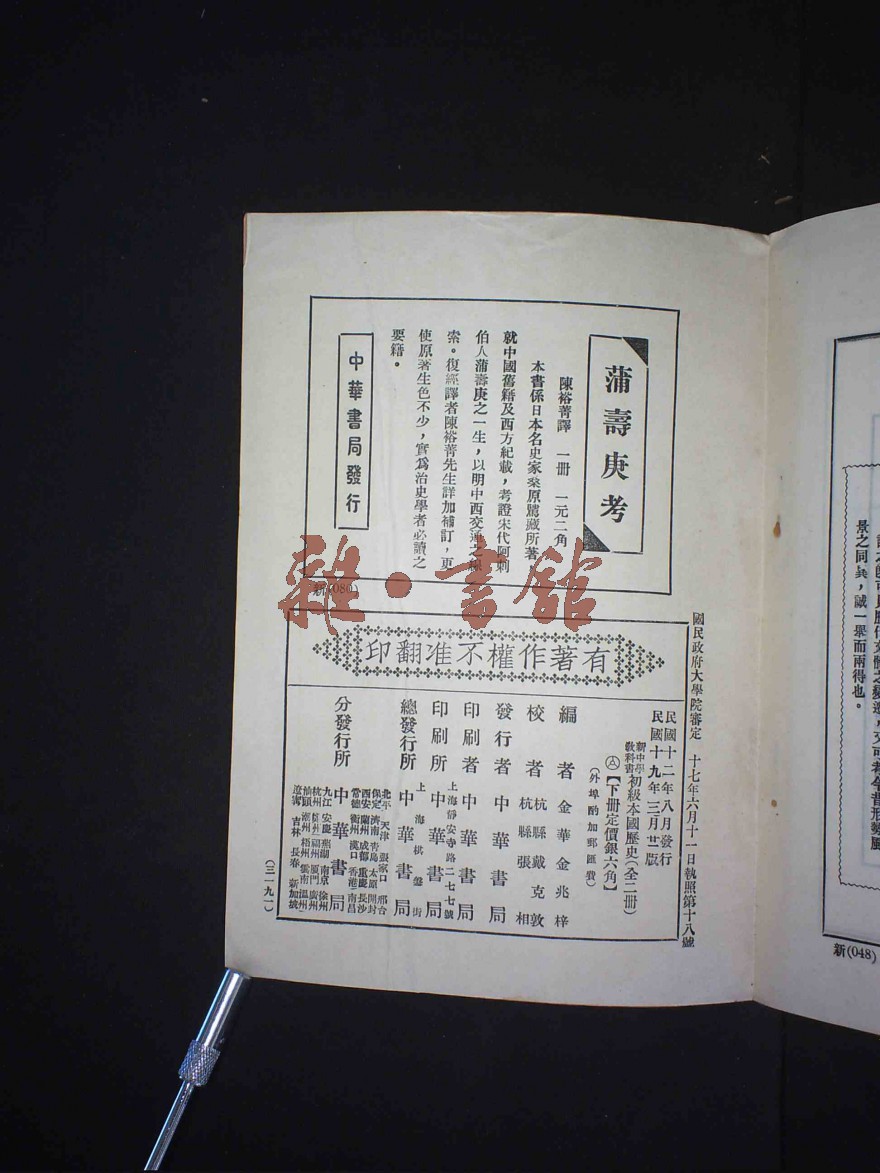 蒲壽庚考
陳裕菁譯　一冊　一元二角
本書係日本名史家桑原騭藏所著，
就中國舊籍及西方紀載，考證宋代阿剌
伯人蒲壽庚之一生，以明中西交通之線
索。復經譯者陳裕菁先生詳加補訂，更
使原著生色不少，實為治史學者必讀之
要籍。
中華書局發行
新(080)
雜·書館
國民政府大學院審定　十七年六月十一日執照第十八號
有著作權不准翻印
民國十二年八月發行
民國十九年三月廿二版
新中學教科書 初級本國歷史(全二冊)
【下冊定價銀六角】
(外埠酌加郵匯費)
編者　金華金兆梓
校者　杭縣戴克敦
杭縣張相
發行者　中華書局
印刷者　中華書局
上海靜安寺路二七七號
印刷所　中華書局
上海棋盤街
總發行所　中華書局
分發行所　中華書局
北平　天津　張家口　邢台
保定　濟南　青島　太原　開封
西安　蘭州　成都　重慶　長沙
常德　衡州　漢口　香港　南昌
九江　安慶　蕪湖　南京　徐州
杭州　福州　廈門　廣州
汕頭　潮州　梧州　雲南　溫州
遼寧　吉林　長春　新加坡
(三一九一)
景之同異，誠一舉而兩得也。
新(048)